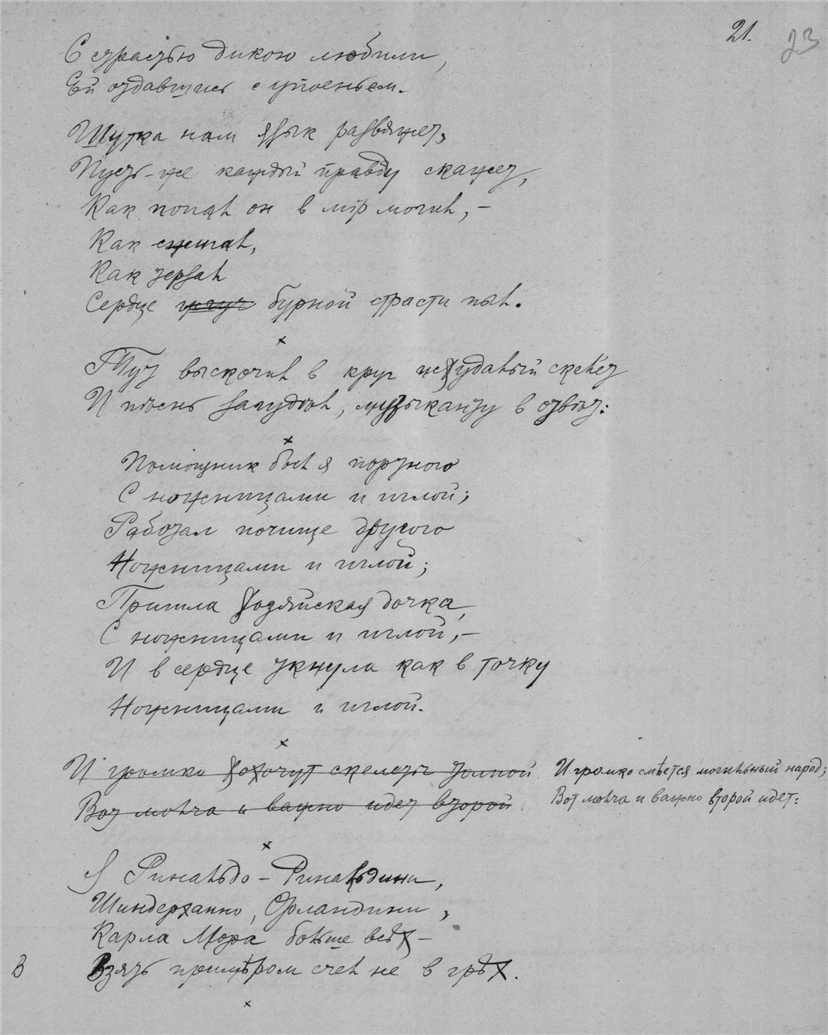 21.
23
С страстью дикою любили,
Ей отдавшись с упоеньем.
Шутка нам язык развяжет,
Пусть-же каждый правду скажет,
Как попал он в мір могил, —
Как
Как терзал
Сердце бурной страсти пыл.
×
Тут выскочил в круг исхудалый скелет
И пѣснь загудѣл, музыканту в отвѣт:
×
Помощник был я портного
С ножницами и иглой;
Работал почище другого
Ножницами и иглой;
Пришла хозяйская дочка
С ножницами и иглой, —
И в сердце ткнула как в точку
Ножницами и иглой.
×
И громко хохочут скелеты толпой И громко смѣется могильный народ;
Вот молча и важно идет второй Вот молча и важно второй идет:
×
Я Ринальдо-Ринальдини,
Шиндерханно, Орландини,
Карла Мора больше всѣх —
В Взять примѣром счел не в грѣх.
×